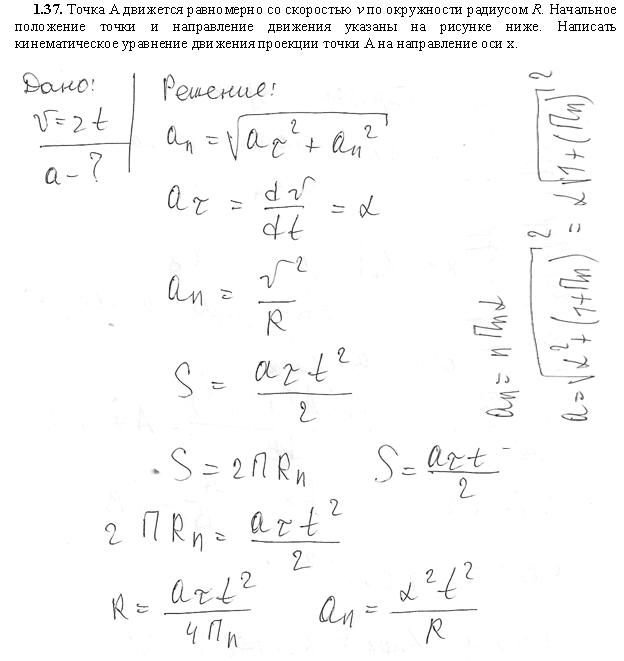 1.37. Точка А движется равномерно со скоростью v по окружности радиусом R. Начальное
положение точки и направление движения указаны на рисунке ниже. Написать
кинематическое уравнение движения проекции точки А на направление оси x.
Дано:
v=2t
a-?
Решение:
aₙ=√(aτ²+aₙ²)
aτ = dv/dt = α
aₙ = v²/R
S = aτt²/2
S=2ПRn
S=aτt/2
2ПRn=aτt²/2
R=aτt²/4Пn
aₙ=α²t²/R
aₙ=nПnα
a=√α²+(1+Пn)² = α√1+(Пn)²